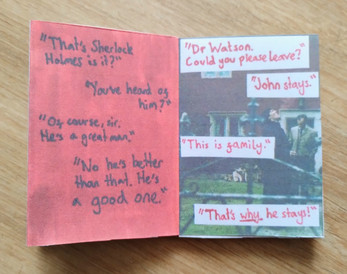 "That's Sherlock
Holmes is it?"
"You've heard of
him?"
"Of course, sir.
He's a great man."
"No he's better
than that. He's
a good one."
"Dr Watson.
Could you please leave?"
"John stays."
"This is family."
"That's why he stays!"